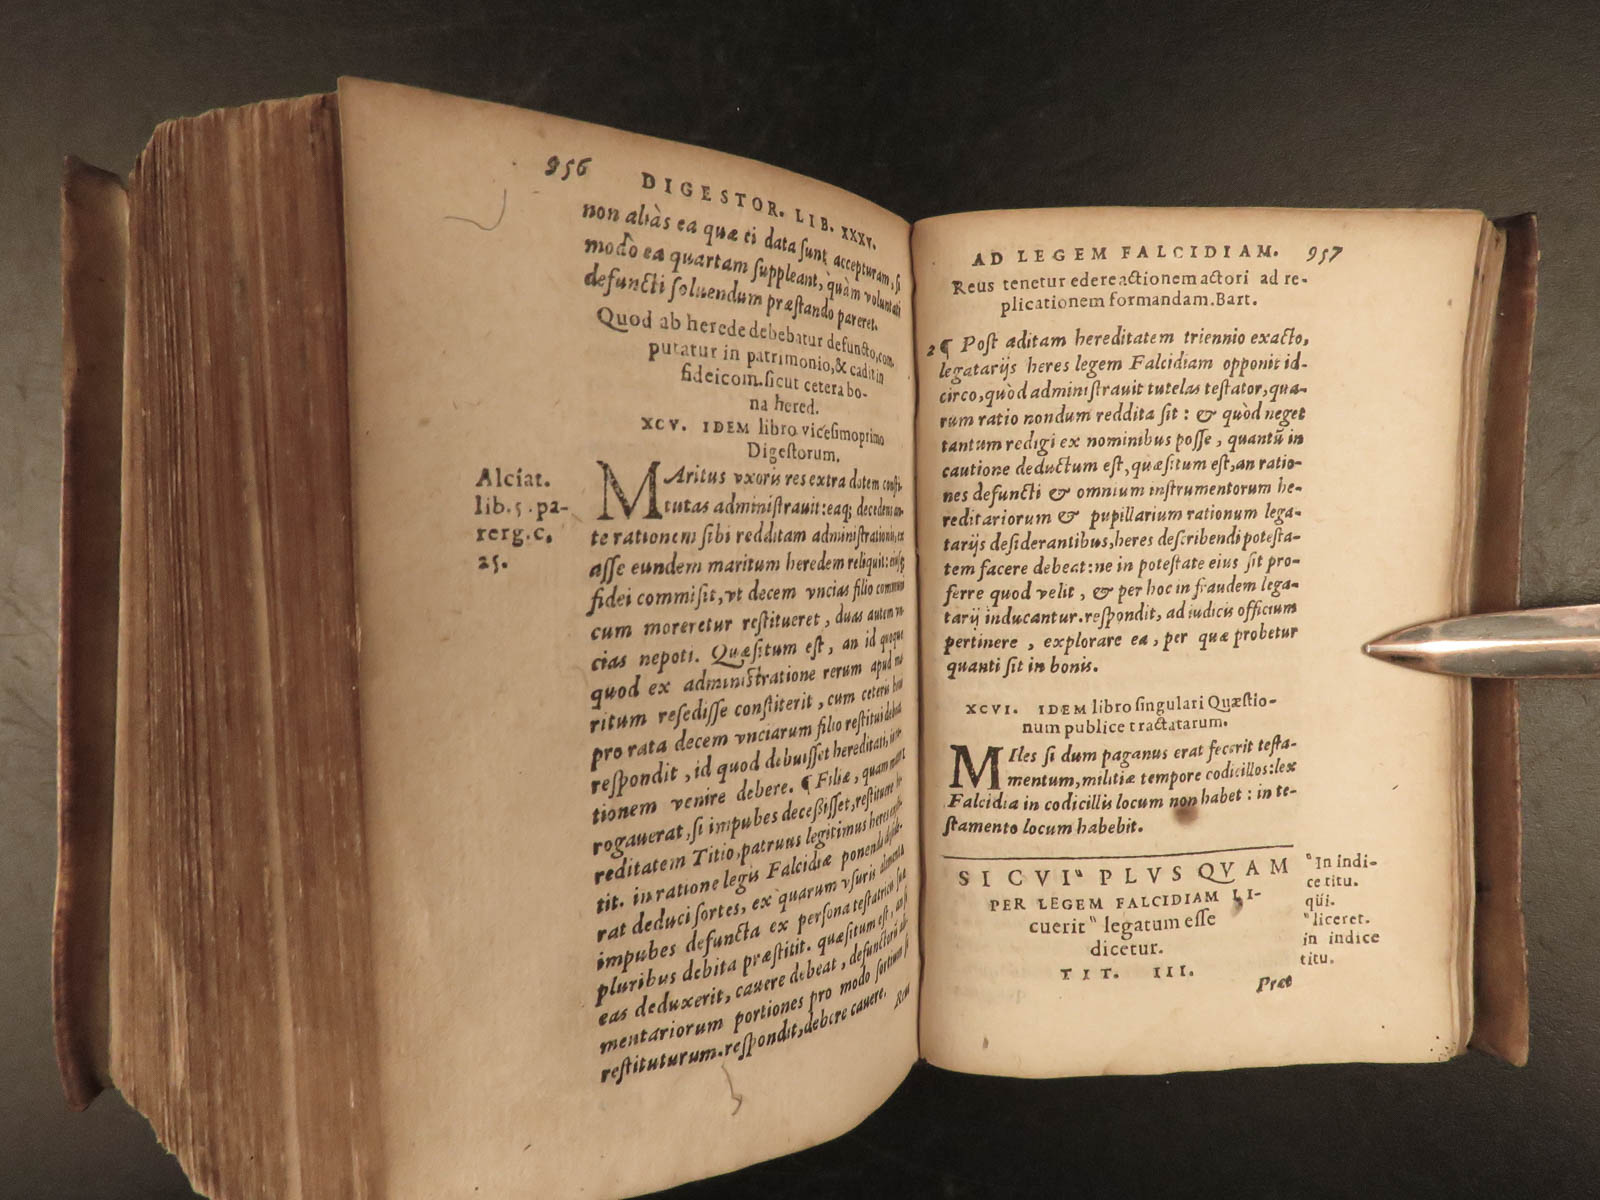 956 DIGESTOR. LIB. XXXV.
non aliàs ea quæ ei data sunt accepturam, si
modò ea quartam suppleant, quàm voluntati
defuncti soluendum præstando pareret.
Quod ab herede debebatur defuncto, com-
putatur in patrimonio, & cadit in
fideicom. sicut cetera bo-
na hered.
XCV. IDEM libro vicesimoprimo
Digestorum.
Alciat.
lib. 5. pa-
rerg. c.
25.
MAritus vxoris res extra dotem consti-
tutas administrauit: eaq; decedens an-
te rationem sibi redditam administrationis, ex
asse eundem maritum heredem reliquit: eiusq;
fidei commisit, vt decem vncias filio communi
cum moreretur restitueret, duas autem vn-
cias nepoti. Quæsitum est, an id quoque
quod ex administratione rerum apud ma-
ritum resedisse constiterit, cum ceteris bonis
pro rata decem vnciarum filio restitui debeat
respondit, id quod debuisset hereditati, in ra-
tionem venire debere. ¶ Filiæ, quam
rogauerat, si impubes decessisset, restituere he-
reditatem Titio, patruus legitimus heres
tit. in ratione legis Falcidiæ ponenda
rat deduci sortes, ex quarum vsuris alimenta
impubes defuncta ex persona testatricis
pluribus debita præstitit. quæsitum est, an si
eas deduxerit, cauere debeat, defunctorū
mentariorum portiones pro modo sortium
restituturum. respondit, debere cauere.
Reus
AD LEGEM FALCIDIAM. 957
Reus tenetur edere actionem actori ad re-
plicationem formandam. Bart.
2 ¶ Post aditam hereditatem triennio exacto,
legatarijs heres legem Falcidiam opponit id-
circo, quòd administrauit tutelas testator, qua-
rum ratio nondum reddita sit: & quòd neget
tantum redigi ex nominibus posse, quantū in
cautione deductum est, quæsitum est, an ratio-
nes defuncti & omnium instrumentorum he-
reditariorum & pupillarium rationum lega-
tarijs desiderantibus, heres describendi potesta-
tem facere debeat: ne in potestate eius sit pro-
ferre quod velit, & per hoc in fraudem lega-
tarij inducantur. respondit, ad iudicis officium
pertinere, explorare ea, per quæ probetur
quanti sit in bonis.
XCVI. IDEM libro singulari Quæstio-
num publice tractatarum.
MIles si dum paganus erat fecerit testa-
mentum, militiæ tempore codicillos: lex
Falcidia in codicillis locum non habet: in te-
stamento locum habebit.
SI CVI" PLVS QVAM
PER LEGEM FALCIDIAM LI-
cuerit" legatum esse
dicetur.
TIT. III.
"In indi-
ce titu.
qui.
"liceret.
in indice
titu.
Præ